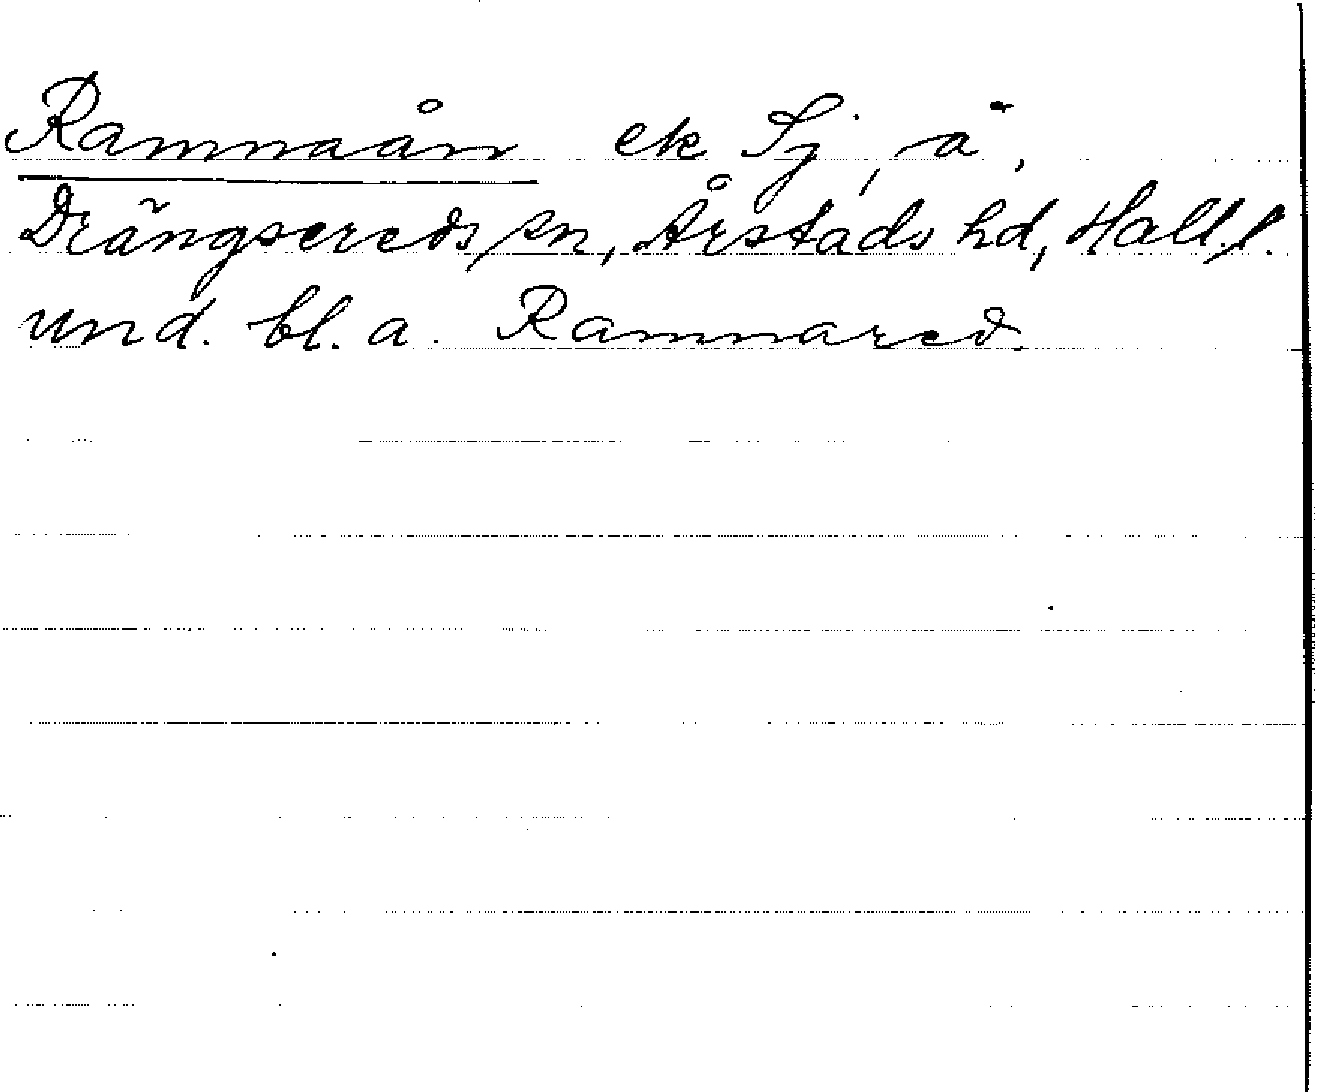 Ramnaån ek Sj, å,
Drängsereds sn, Årstads hd, Hall.l.
und. bl. a. Ramnared.